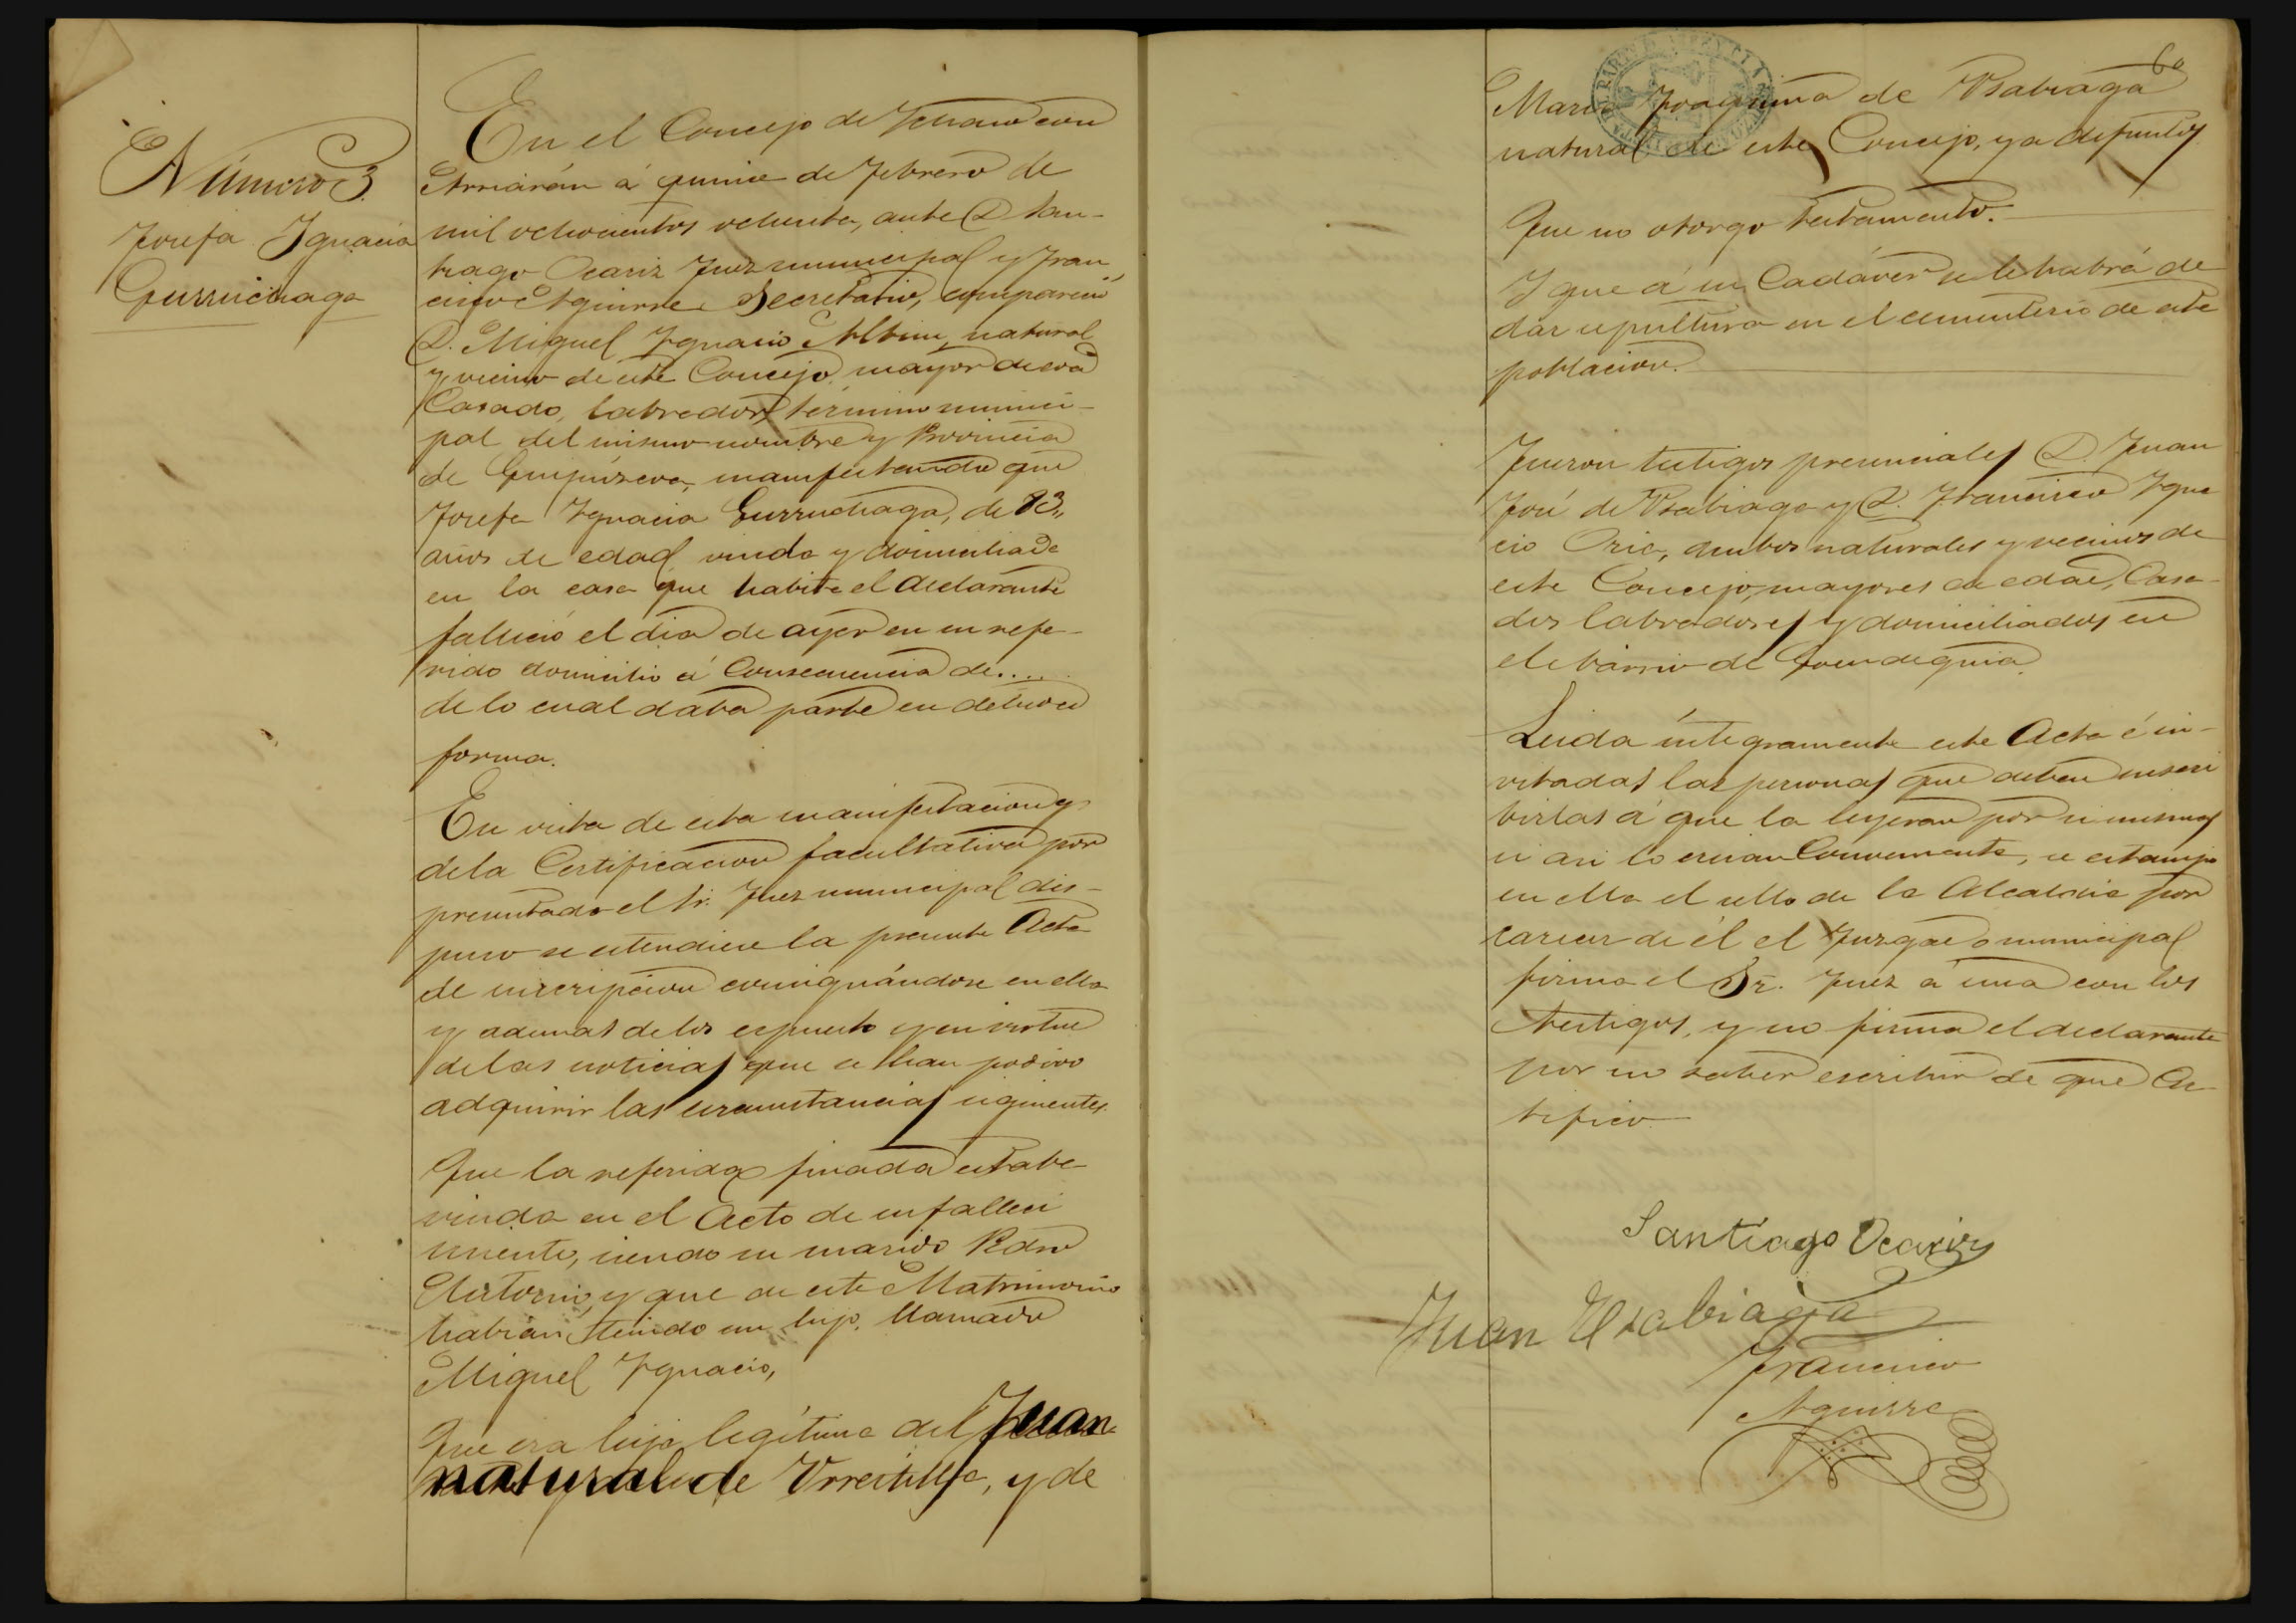 Número 3.
Josefa Ignacia
Gurruchaga
En el Concejo de Ichaso con
Arriarán á quince de Febrero de
mil ochocientos ochenta, ante D. San-
tiago Ocariz Juez municipal y Fran
cisco Aguirre Secretario, compareció
D. Miguel Ignacio Albisu, natural
y vecino de este Concejo, mayor de edad
Casado, labrador, término munici-
pal del mismo nombre y Provincia
de Guipúzcoa, manifestando que
Josefa Ignacia Gurruchaga, de 83,,
años de edad, viuda y domiciliada
en la casa que habita el declarante
falleció el dia de ayer en su refe-
rido domicilio á Consecuencia de....
de lo cual daba parte en debida
forma.
En vista de esta manifestacion y
de la Certificacion facultativa por
presentada el Sr. Juez municipal dis-
puso se estendiese la presente Acta
de inscripcion consignándose en ella
y ademas de los espuesto y en virtud
de las noticias que se han podido
adquirir las circunstancias siguientes.
Que la referida finada estaba
viuda en el Acto de su falleci
miento, siendo su marido Pedro
Antonio, y que de este Matrimonio
habian tenido un hijo, llamado
Miguel Ignacio,
Que era hija legítima del Juan
natural de Urrestilla, y de
60
Maria Joaquina de Usabiaga
natural de este Concejo, ya defuntos
Que no otorgo testamento.
Y que á su Cadáver se le habrá de
dar sepultura en el cementerio de este
poblacion.
Fueron testigos presenciales D. Juan
José de Usabiaga y D. Francisco Igna
cio Oria, ambos naturales y vecinos de
este Concejo, mayores de edad, Casa-
dos labradores y domiciliados en
el barrio de Goendeguia.
Leida íntegramente este Acta é in-
vitadas las personas que deben suscri
birlas á que la leyeran por si mismas
si asi lo creian Conveniente, se estampo
en ella el sello de la Alcaldia por
carecer de él el Juzgado municipal
firma el Sr. Juez á una con los
testigos, y no firma el declarante
por no saber escribir de que Cer-
tifico.
Santiago Ocariz
Juan Usabiaga
Francisco
Aguirre